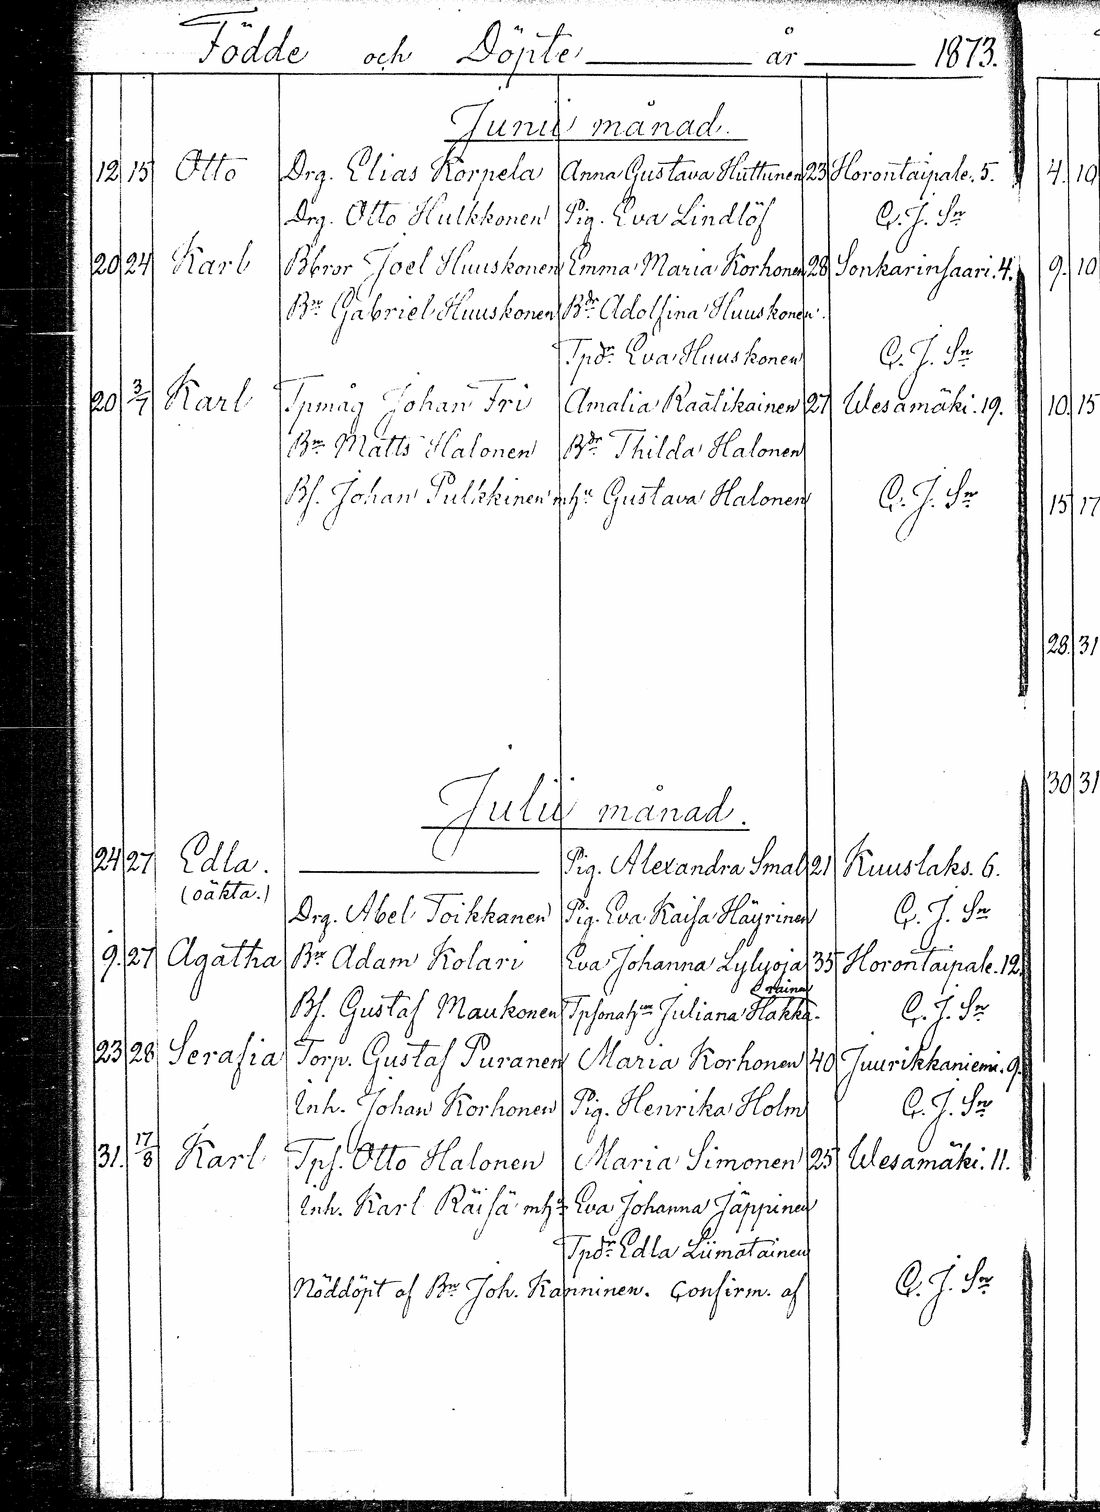 Födde och Döpte år 1873.
Junii månad.
12 15 Otto Drg. Elias Korpela Anna Gustava Huttunen 23 Horontaipale. 5.
Drg. Otto Hulkkonen Pig. Eva Lindlöf C. J. Sn
20 24 Karl Bbror Joel Huuskonen Emma Maria Korhonen 28 Sonkarinsaari. 4.
Bn Gabriel Huuskonen Bdr Adolfina Huuskonen.
Tpdr Eva Huuskonen C. J. Sn
20 3/7 Karl Tpmåg Johan Fri Amalia Räätikainen 27 Wesamäki. 19.
Bn Matts Halonen Bdr Thilda Halonen
Bs. Johan Pulkkinen mhu Gustava Halonen C. J. Sn
Julii månad.
24 27 Edla. Pig. Alexandra Smal 21 Kuuslaks. 6.
(oäkta.)
Drg. Abel Toikkanen Pig. Eva Kaisa Häyrinen C. J. Sn
9. 27 Agatha Bn Adam Kolari Eva Johanna Lylyoja 35 Horontaipale. 12.
Bs. Gustaf Maukonen Tpsonahun Juliana Hakka-rainen C. J. Sn
23 28 Serafia Torp. Gustaf Puranen Maria Korhonen 40 Juurikkaniemi. 9.
Inh. Johan Korhonen Pig. Henrika Holm C. J. Sn
31. 17/8 Karl Tps. Otto Halonen Maria Simonen 25 Wesamäki. 11.
Inh. Karl Räisä mhu Eva Johanna Jäppinen
Tpdr Edla Liimatainen
Nöddöpt af Bn Joh. Kanninen. Confirm. af C. J. Sn
4. 10
9. 10
10. 15
15 17
28. 31
30 31